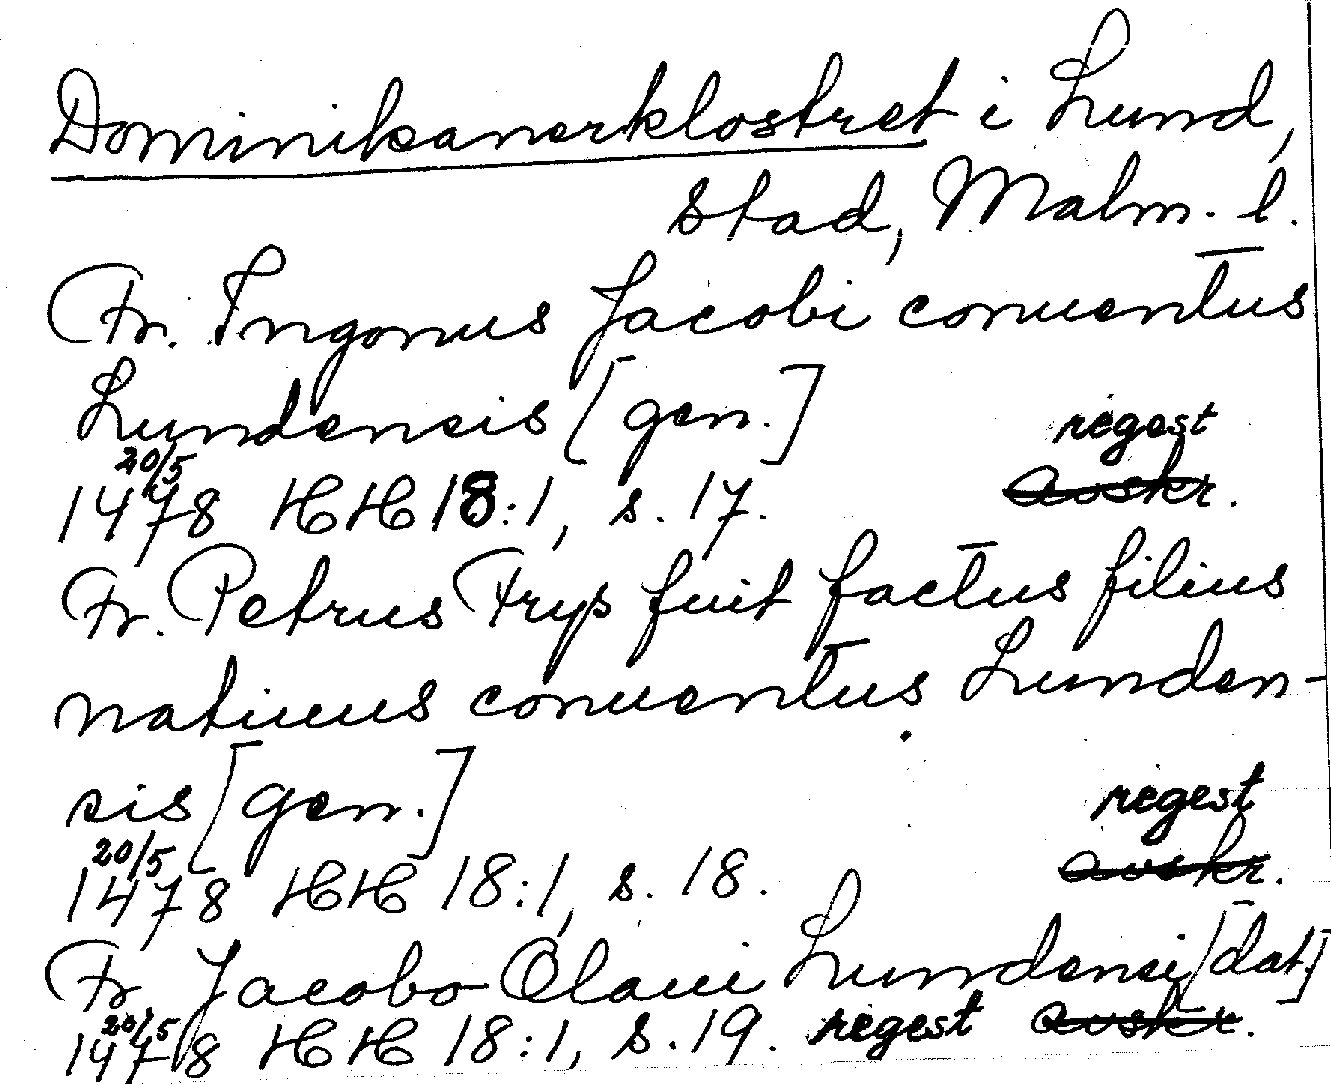 Dominikanerklostret i Lund,
stad, Malm. l.
Fr. Trugonus Jacobi conuentus
Lundensis [gen.] regest
20/5
1478 HH 18:1, s. 17. avskr.
Fr. Petrus Fryss fuit factus filius
natiuus conuentus Lunden-
sis [gen.] regest
20/5
1478 HH 18:1, s. 18. avskr.
Fr. Jacobo Olaui Lundensi [dat.]
20/5
1478 HH 18:1, s. 19. regest avskr.